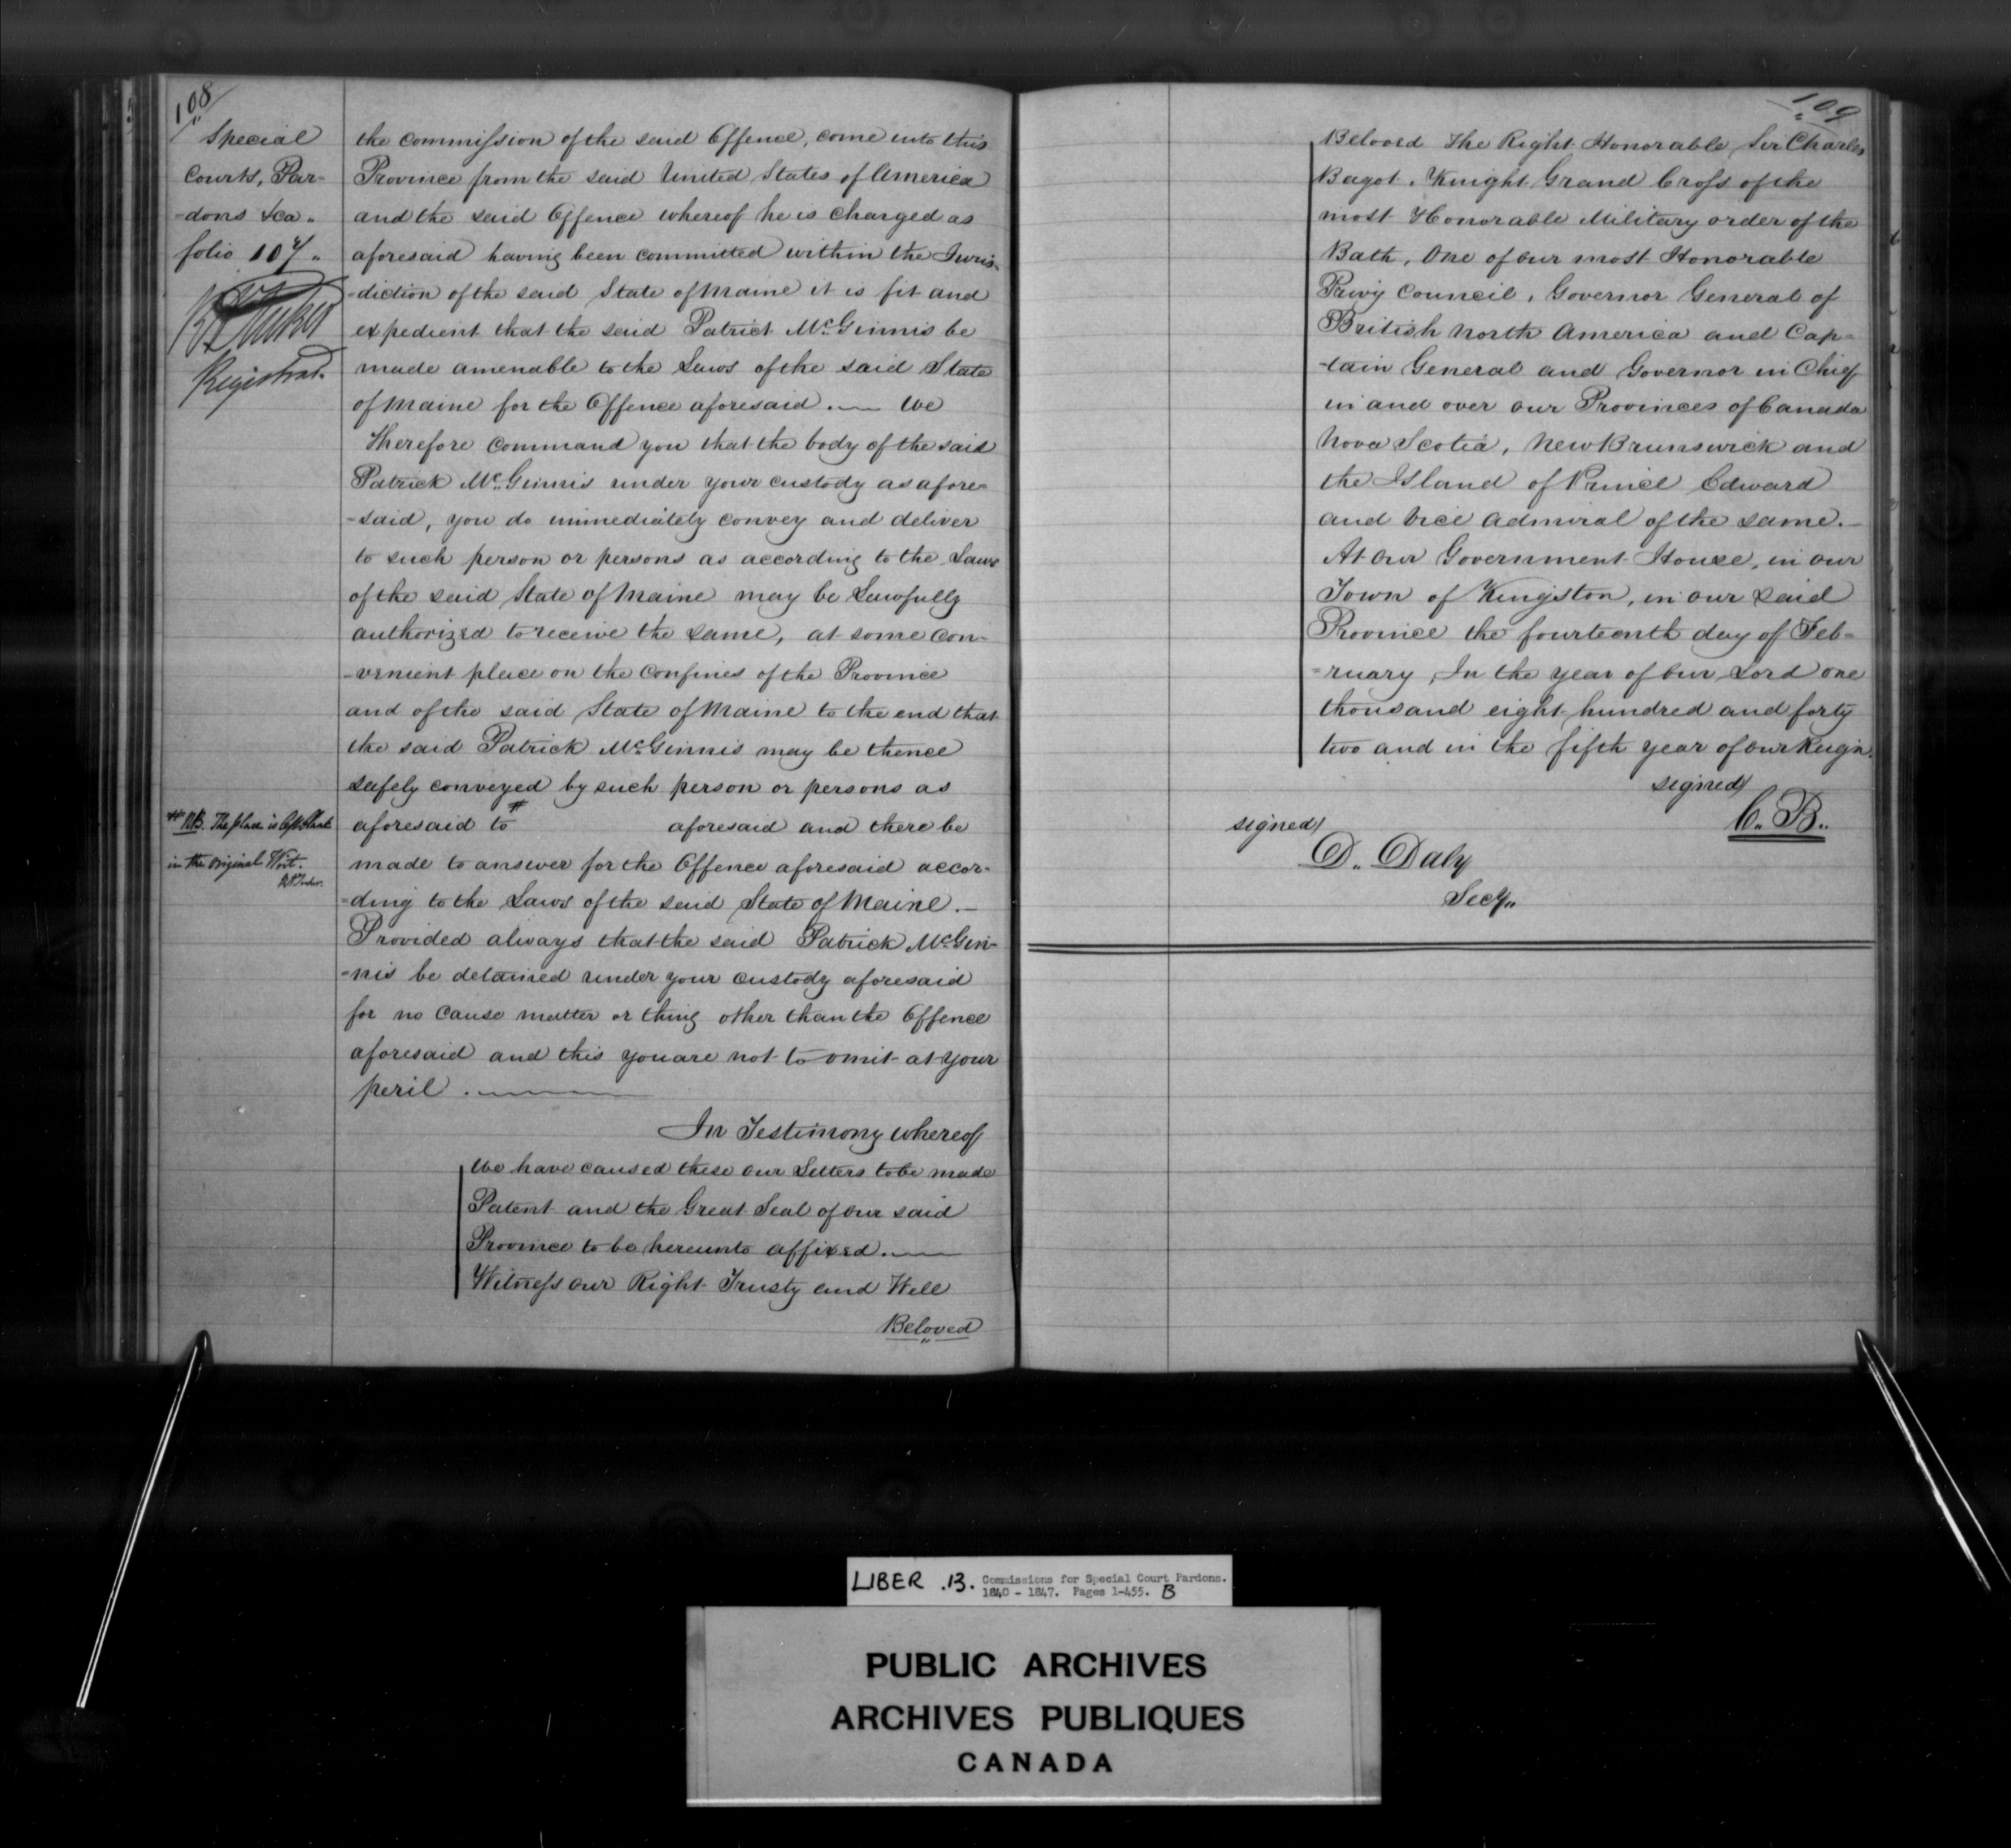 108
Special
Courts, Par-
-dons &ca "
folio 107 "
Registrar.
the commission of the said Offence, come into this
Province from the said United States of America
and the said Offence whereof he is charged as
aforesaid having been committed within the Juris-
-diction of the said State of Maine it is fit and
expedient that the said Patrict McGinnis be
made amenable to the Laws of the said State
of Maine for the Offence aforesaid. — We
Therefore command you that the body of the said
Patrick McGinnis under your custody as afore-
-said, you do immediately convey and deliver
to such person or persons as according to the Laws
of the said State of Maine may be Lawfully
authorized to receive the same, at some con-
-venient place on the confines of the Province
and of the said State of Maine to the end that
the said Patrick McGinnis may be thence
safely conveyed by such person or persons as
aforesaid to # aforesaid and there be
made to answer for the Offence aforesaid accor-
-ding to the Laws of the said State of Maine. —
Provided always that the said Patrick McGin-
-nis be detained under your custody aforesaid
for no cause matter or thing other than the Offence
aforesaid and this you are not to omit at your
peril. —
# NB. The place is left blank
in the original Writ.
In Testimony whereof
We have caused these our Letters to be made
Patent and the Great Seal of our said
Province to be hereunto affixed. —
Witness our Right Trusty and Well
Beloved
109
Beloved The Right Honorable Sir Charles
Bagot, Knight Grand Cross of the
most Honorable Military order of the
Bath, One of our most Honorable
Privy Council, Governor General of
British North America and Cap-
-tain General and Governor in Chief
in and over our Provinces of Canada
Nova Scotia, New Brunswick and
the Island of Prince Edward
and Vice Admiral of the same. —
At our Government House, in our
Town of Kingston, in our said
Province the fourteenth day of Feb-
-ruary, In the year of our Lord one
thousand eight hundred and forty
two and in the fifth year of our Reign.
signed/
C. B.
signed/
D. Daly
Secy.
LIBER .13. Commissions for Special Court Pardons.
1840 - 1847. Pages 1-455. B
PUBLIC ARCHIVES
ARCHIVES PUBLIQUES
CANADA